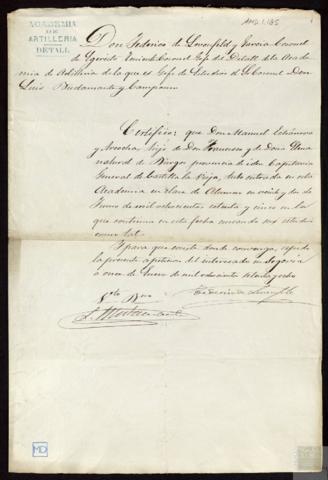 AMD.1.185
ACADEMIA
DE
ARTILLERIA
DETALL
Don Federico de Lovenfeld y García Coronel
de Egercito Teniente Coronel Gefe del Detall de la Aca
demia de Artilleria de la que es Gefe de Estudios el Coronel Don
Luis Bustamante y Campaner
Certifico: que Don Manuel
y hijo de Don Francisco y de Doña
natural de Burgos provincia de idem Capitania
General de Castilla la Vieja, tubo entrada en esta
Academia en clase de Alumno en veinte y dos de
Junio de mil ochocientos setenta y cinco en la
que continua en esta fecha cursando sus estudios
como tal.
Y para que conste donde convenga, expido
la presente a peticion del interesado en Segovia
á once de Enero de mil ochocientos setenta y ocho
Vto Bno
L. Bustamante
Federico de Lovenfeld
MD